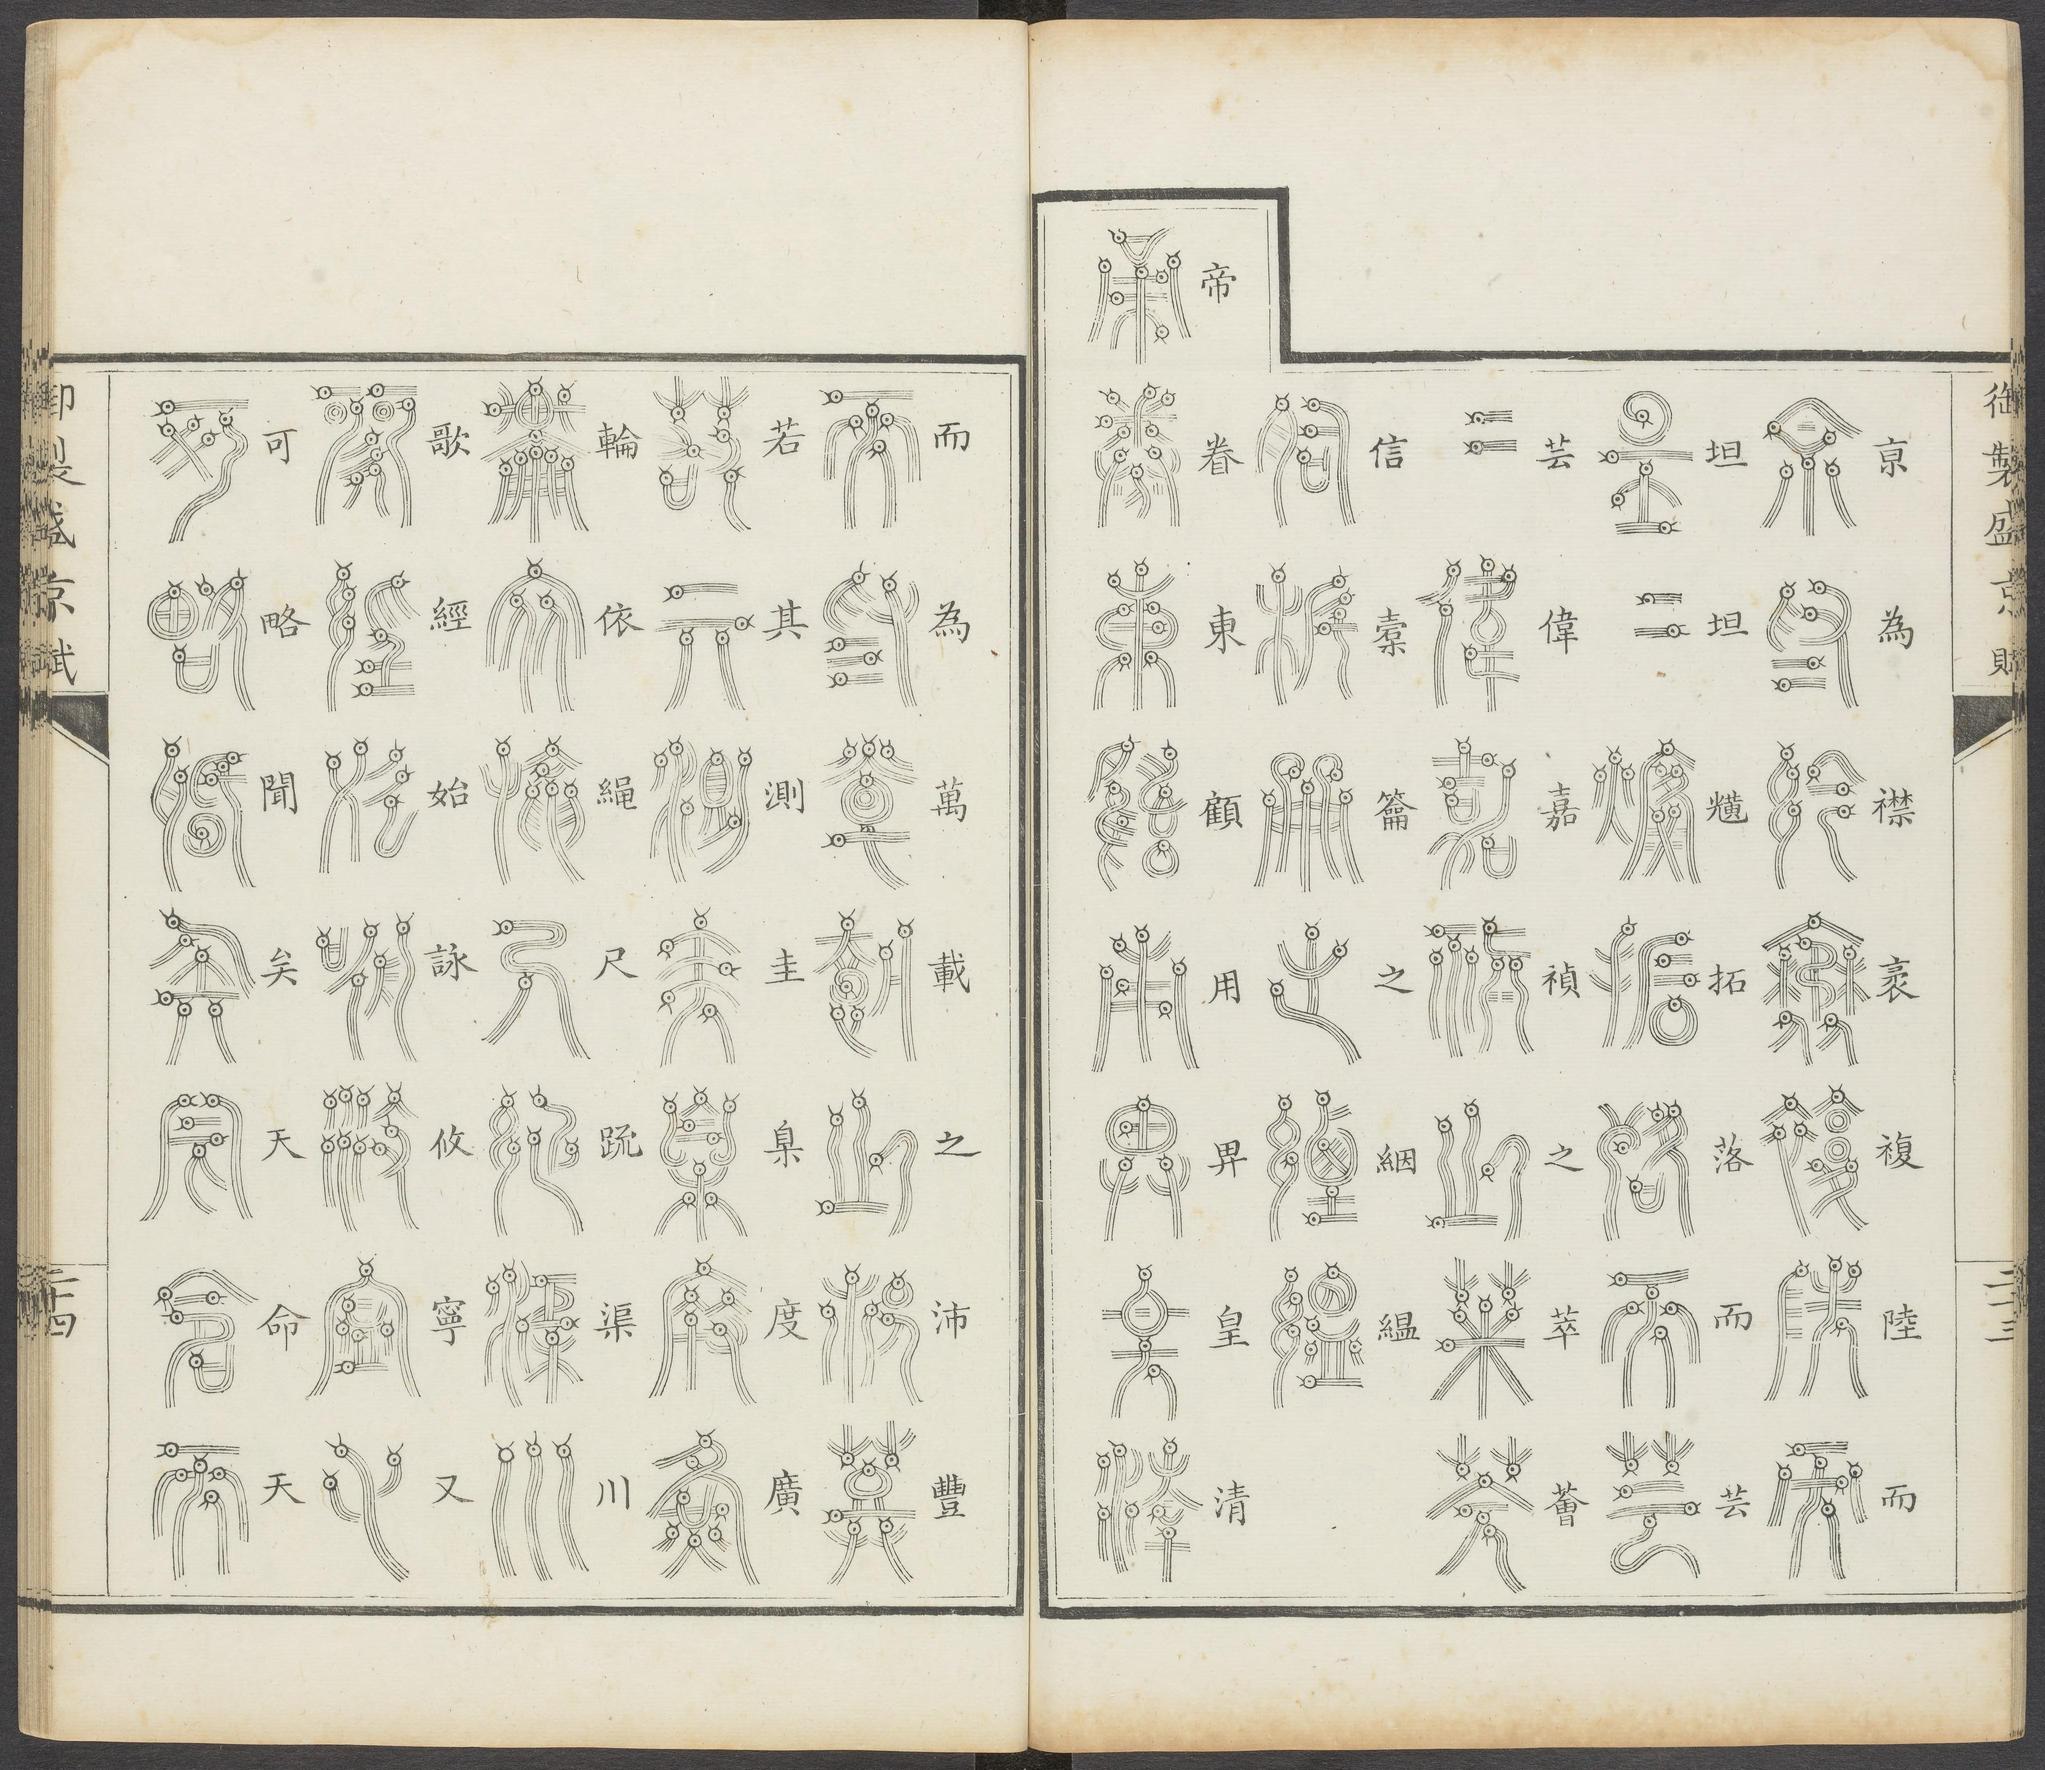 御製盛京賦
二十三
亰為襟裹複陸而
坦坦爌拓落而芸
芸偉嘉禎之萃薈
信橐籥之絪縕
帝眷東顧用畀皇清
而為萬載之沛豐
若其測圭臬度廣
輪依繩尺䟽渠川
歌經始詠攸寧又
可略聞矣天命天
御製盛京賦
二十四